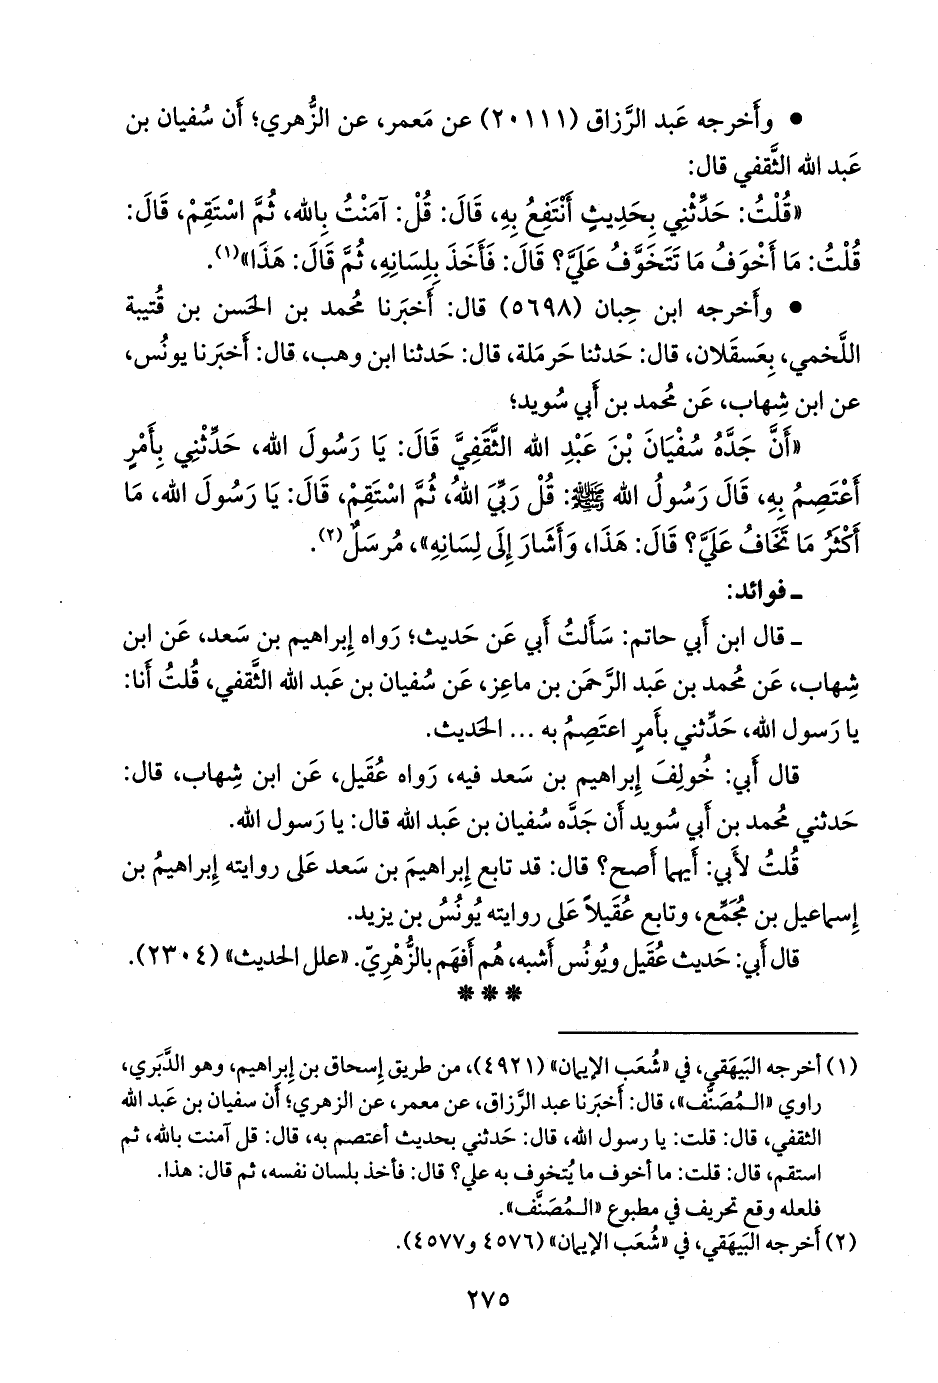 • وأَخرجه عَبد الرَّزاق (٢٠١١١) عن مَعمر، عن الزُّهري؛ أَن سُفيان بن
عَبد الله الثَّقفي قال:
«قُلْتُ: حَدِّثْنِي بِحَدِيثٍ أَنْتَفِعُ بِهِ، قَالَ: قُلْ: آمَنْتُ بِالله، ثُمَّ اسْتَقِمْ، قَالَ:
قُلْتُ: مَا أَخْوَفُ مَا تَتَخَوَّفُ عَلَيَّ؟ قَالَ: فَأَخَذَ بِلِسَانِهِ، ثُمَّ قَالَ: هَذَا»(١).
• وأَخرجه ابن حِبان (٥٦٩٨) قال: أَخبَرنا مُحمد بن الحَسن بن قُتيبة
اللَّخمي، بِعَسقَلان، قال: حَدثنا حَرمَلة، قال: حَدثنا ابن وهب، قال: أَخبَرنا يونُس،
عن ابن شِهاب، عَن مُحمد بن أَبي سُويد؛
«أَنَّ جَدَّهُ سُفْيَانَ بْنَ عَبْدِ الله الثَّقَفِيَّ قَالَ: يَا رَسُولَ الله، حَدِّثْنِي بِأَمْرٍ
أَعْتَصِمُ بِهِ، قَالَ رَسُولُ الله ﷺ: قُلْ رَبِّيَ اللهُ، ثُمَّ اسْتَقِمْ، قَالَ: يَا رَسُولَ الله، مَا
أَكْثَرُ مَا تَخَافُ عَلَيَّ؟ قَالَ: هَذَا، وَأَشَارَ إِلَى لِسَانِهِ»، مُرسَلٌ(٢).
ـ فوائد:
ـ قال ابن أَبي حاتم: سَأَلتُ أَبي عَن حَديث؛ رَواه إِبراهيم بن سَعد، عَن ابن
شِهاب، عَن مُحمد بن عَبد الرَّحمَن بن ماعِز، عَن سُفيان بن عَبد الله الثَّقفي، قُلتُ أَنا:
يا رَسول الله، حَدِّثني بأَمرٍ اعتَصِمُ به ... الحَديث.
قال أَبي: خُولِفَ إِبراهيم بن سَعد فيه، رَواه عُقَيل، عَن ابن شِهاب، قال:
حَدثني مُحمد بن أَبي سُويد أَن جَدَّه سُفيان بن عَبد الله قال: يا رَسول الله.
قُلتُ لأَبي: أَيهما أَصح؟ قال: قد تابع إِبراهيمَ بن سَعد عَلى روايته إِبراهيمُ بن
إِسماعيل بن مُجَمِّع، وتابع عُقَيلاً عَلى روايته يُونُسُ بن يزيد.
قال أَبي: حَديث عُقَيل ويُونُس أَشبه، هُم أَفهَم بالزُّهْرِيّ. «علل الحَديث» (٢٣٠٤).
* * *
(١) أخرجه البَيهَقي، في «شُعَب الإيمان» (٤٩٢١)، من طريق إِسحاق بن إِبراهيم، وهو الدَّبَري،
راوي «الـمُصَنَّف»، قال: أَخبَرنا عبد الرَّزاق، عن معمر، عن الزهري؛ أن سفيان بن عَبد الله
الثقفي، قال: قلت: يا رسول الله، قال: حَدثني بحديث أعتصم به، قال: قل آمنت بالله، ثم
استقم، قال: قلت: ما أخوف ما يُتخوف به علي؟ قال: فأخذ بلسان نفسه، ثم قال: هذا.
فلعله وقع تحريف في مطبوع «الـمُصَنَّف».
(٢) أَخرجه البَيهَقي، في «شُعَب الإيمان» (٤٥٧٦ و٤٥٧٧).
٢٧٥